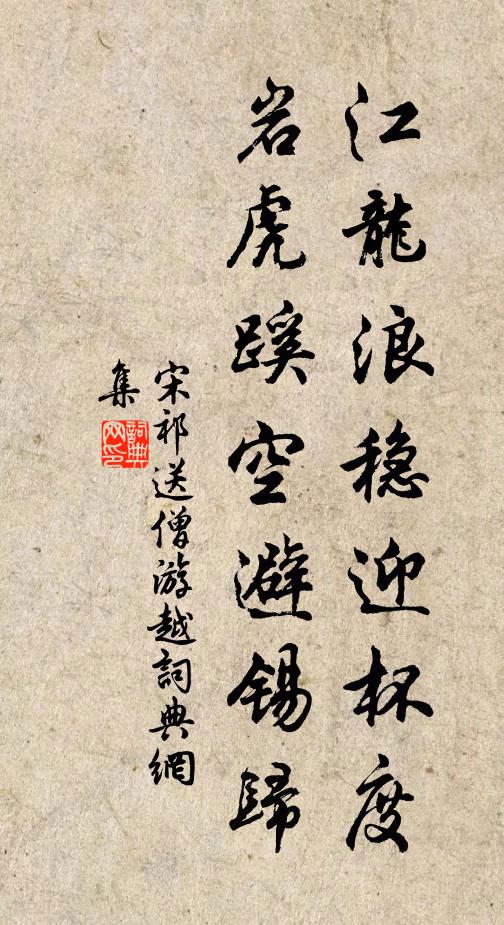 江龍浪穏迎杯度
岩虎蹊空避錫歸
宋祁送僧游越詞典網
集
詞典
网印